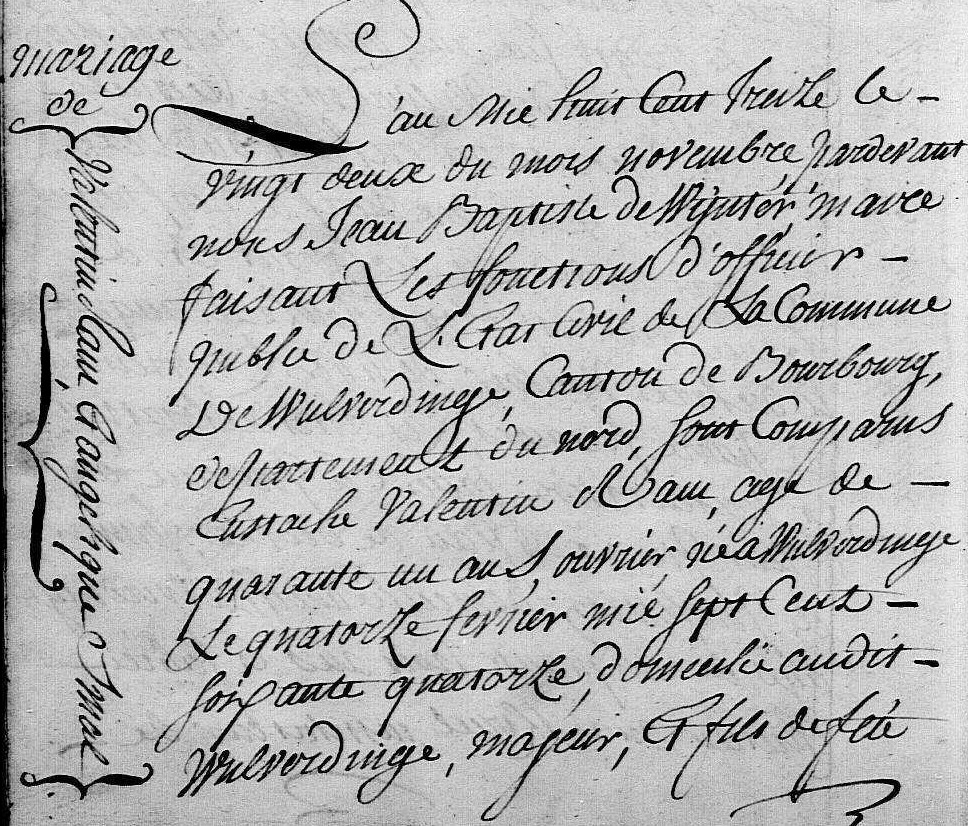 mariage
de
Valentin Ram, et angelique Smal
L'an Mil huit Cent treize le -
vingt deux du mois novembre, pardevant
nous Jean Baptiste De Wynter maire
faisant Les fonctions d'officier -
public de L'Etat Civil de La Commune
De Wulverdinge, Canton de Bourbourg,
departement du nord, sont Comparus
Eustache Valentin Ram, agé de -
quarante un ans, ouvrier né a Wulverdinge
Le quatorze fevrier mil sept Cent -
soixante quatorze, domicilié audit -
Wulverdinge, majeur, Et fils de feu